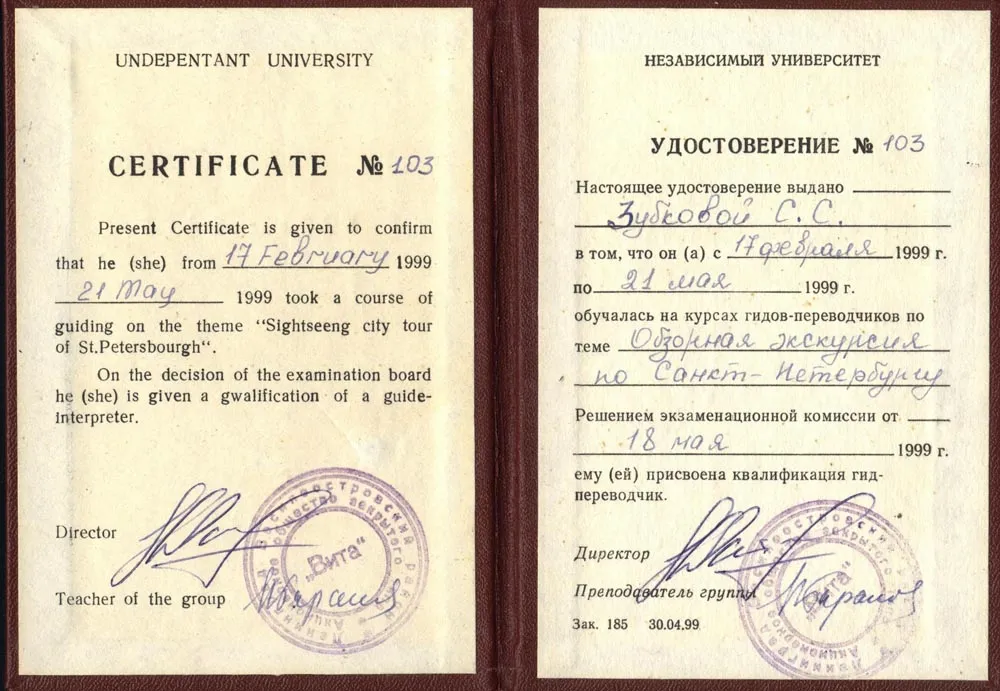 UNDEPENTANT UNIVERSITY
CERTIFICATE № 103
Present Certificate is given to confirm
that he (she) from 17 February 1999
21 May 1999 took a course of
guiding on the theme “Sightseeng city tour
of St.Petersbourgh“.
On the decision of the examination board
he (she) is given a gwalification of a guide-
interpreter.
Director
Teacher of the group
„Вита“
НЕЗАВИСИМЫЙ УНИВЕРСИТЕТ
УДОСТОВЕРЕНИЕ № 103
Настоящее удостоверение выдано
Зубковой С. С.
в том, что он (а) с 17 февраля 1999 г.
по 21 мая 1999 г.
обучалась на курсах гидов-переводчиков по
теме Обзорная экскурсия
по Санкт-Петербургу
Решением экзаменационной комиссии от
18 мая 1999 г.
ему (ей) присвоена квалификация гид-
переводчик.
Директор
Преподаватель группы
Зак. 185 30.04.99